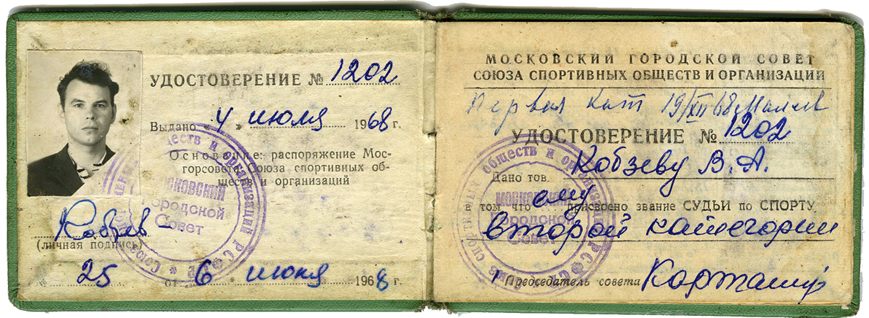 УДОСТОВЕРЕНИЕ № 1202
Выдано „4" июля 1968 г.
Основание: распоряжение Мос-
горсовета Союза спортивных об-
ществ и организаций
МОСКОВСКИЙ
Городской
Совет
Кобзев
(личная подпись)
25 от 6 июня 1968 г.
МОСКОВСКИЙ ГОРОДСКОЙ СОВЕТ
СОЮЗА СПОРТИВНЫХ ОБЩЕСТВ И ОРГАНИЗАЦИЙ
Первая кат 19/XII 68
УДОСТОВЕРЕНИЕ № 1202
Дано тов. Кобзеву В. А.
в том что ему присвоено звание СУДЬИ по СПОРТУ
второй категории
МОСКОВСКИЙ
Городской
Совет
Председатель совета